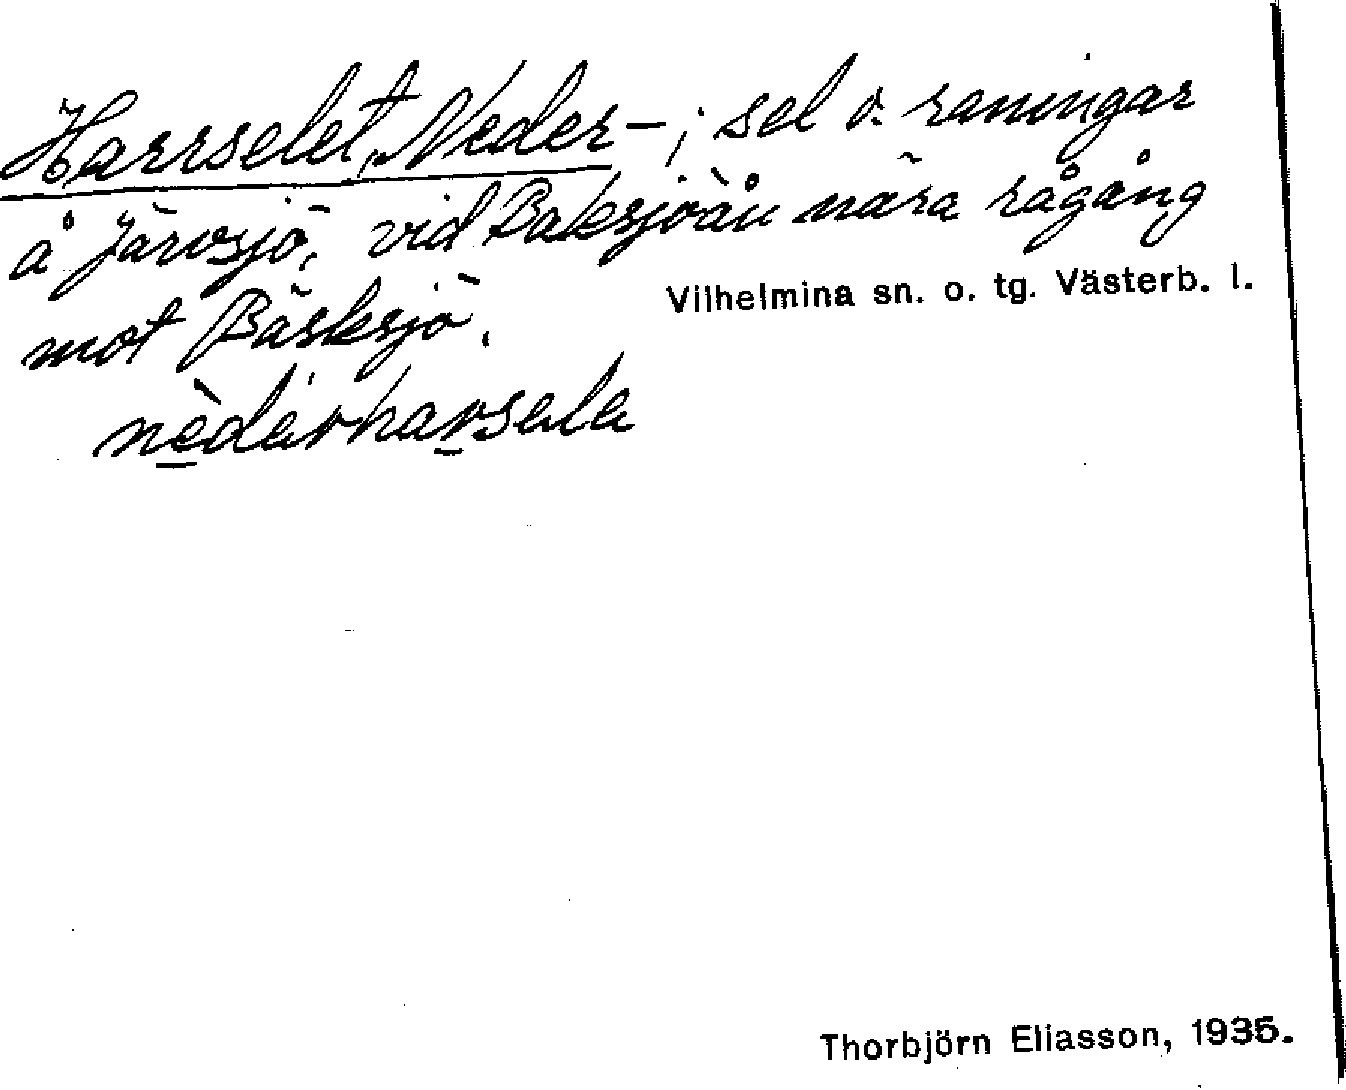 Harrselet, Neder-; sel o. raningar
å Järvsjö, vid Baksjöån nära rågång
mot Bäsksjö.
Vilhelmina sn. o. tg. Västerb. l.
Thorbjörn Eliasson, 1935.